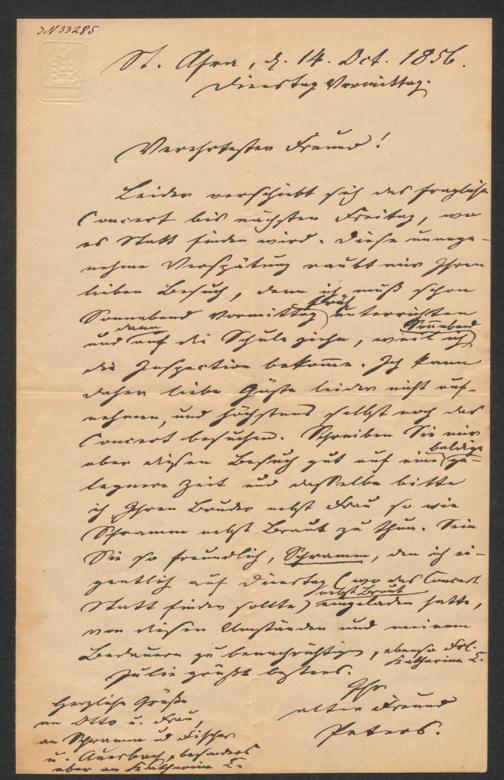 JN 33285
St. Afra, d. 14. Oct. 1856.
Dienstag Vormittag.
Verehrtester Freund!
Leider verschiebt sich das fragliche
Concert bis nächsten Freitag, wo
es Statt finden wird. Diese unange-
nehme Verspätung raubt mir Ihren
lieben Besuch, denn ich muß schon
Sonnabend Vormittag früh unterrichten
und dann auf die Schule ziehn, weil ich Sonnabend
die Inspection bekomme. Ich kann
daher liebe Gäste leider nicht auf-
nehmen, und höchstens selbst noch das
Concert besuchen. Schreiben Sie mir
aber diesen Besuch gut auf eine baldige ge-
legnere Zeit und dasselbe bitte
ich Ihren Bruder nebst Frau so wie
Schramm nebst Braut zu thun. Sein
Sie so freundlich, Schramm, den ich ei-
gentlich auf Dienstag (wo das Concert
Statt finden sollte) nebst Braut eingeladen hatte,
von diesen Umständen und meinem
Bedauern zu benachrichtigen, ebenso Frl.
Katharina L.
Julie grüßt bestens.
Ihr
alter Freund
Peters.
Herzliche Grüße
an Otto u. Frau,
an Schramm und Fischer
u. Auerbach, besonders
aber an Katharina L.